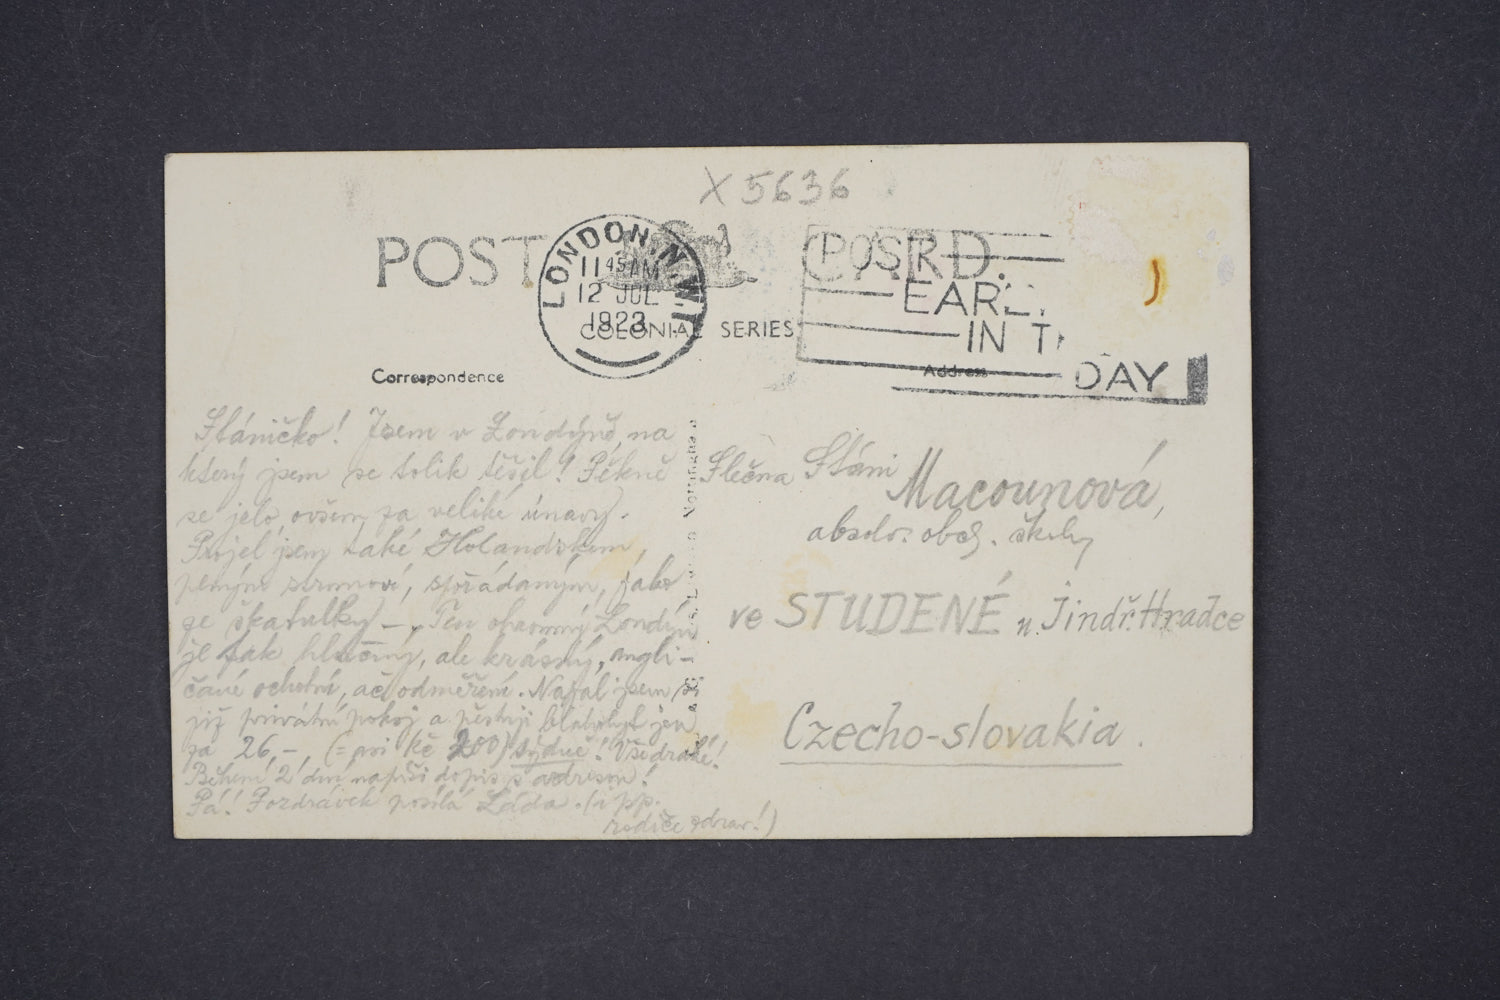 X 5636
POST CARD.
LONDON. N.W.1
11 45 AM
12 JUL
1923
COLONIAL SERIES
POST
EARLY
IN TH
DAY
Correspondence
Address
Stáničko! Jsem v Londýně, na
který jsem se tolik těšil! Pěkně
se jelo, ovšem za veliké únavy.
Projel jsem také Holandskem,
plným stromoví, spořádaným, jako
ze škatulky – Ten ohromný Londýn
je tak hlučný, ale krásný, angli-
čané ochotní, ač odměření. Najal jsem si
již privátní pokoj a jen
za 26 –, (= asi kč 200) týdně! Vše drahé!
Během 2 dní napíši dopis s adresou!
Pá! Pozdrávek posílá Láda. (i pp.
rodiče zdrav!)
Slečna Stáni
Macounová,
absolv. obch. školy
ve STUDENÉ u Jindř. Hradce
Czecho-slovakia.